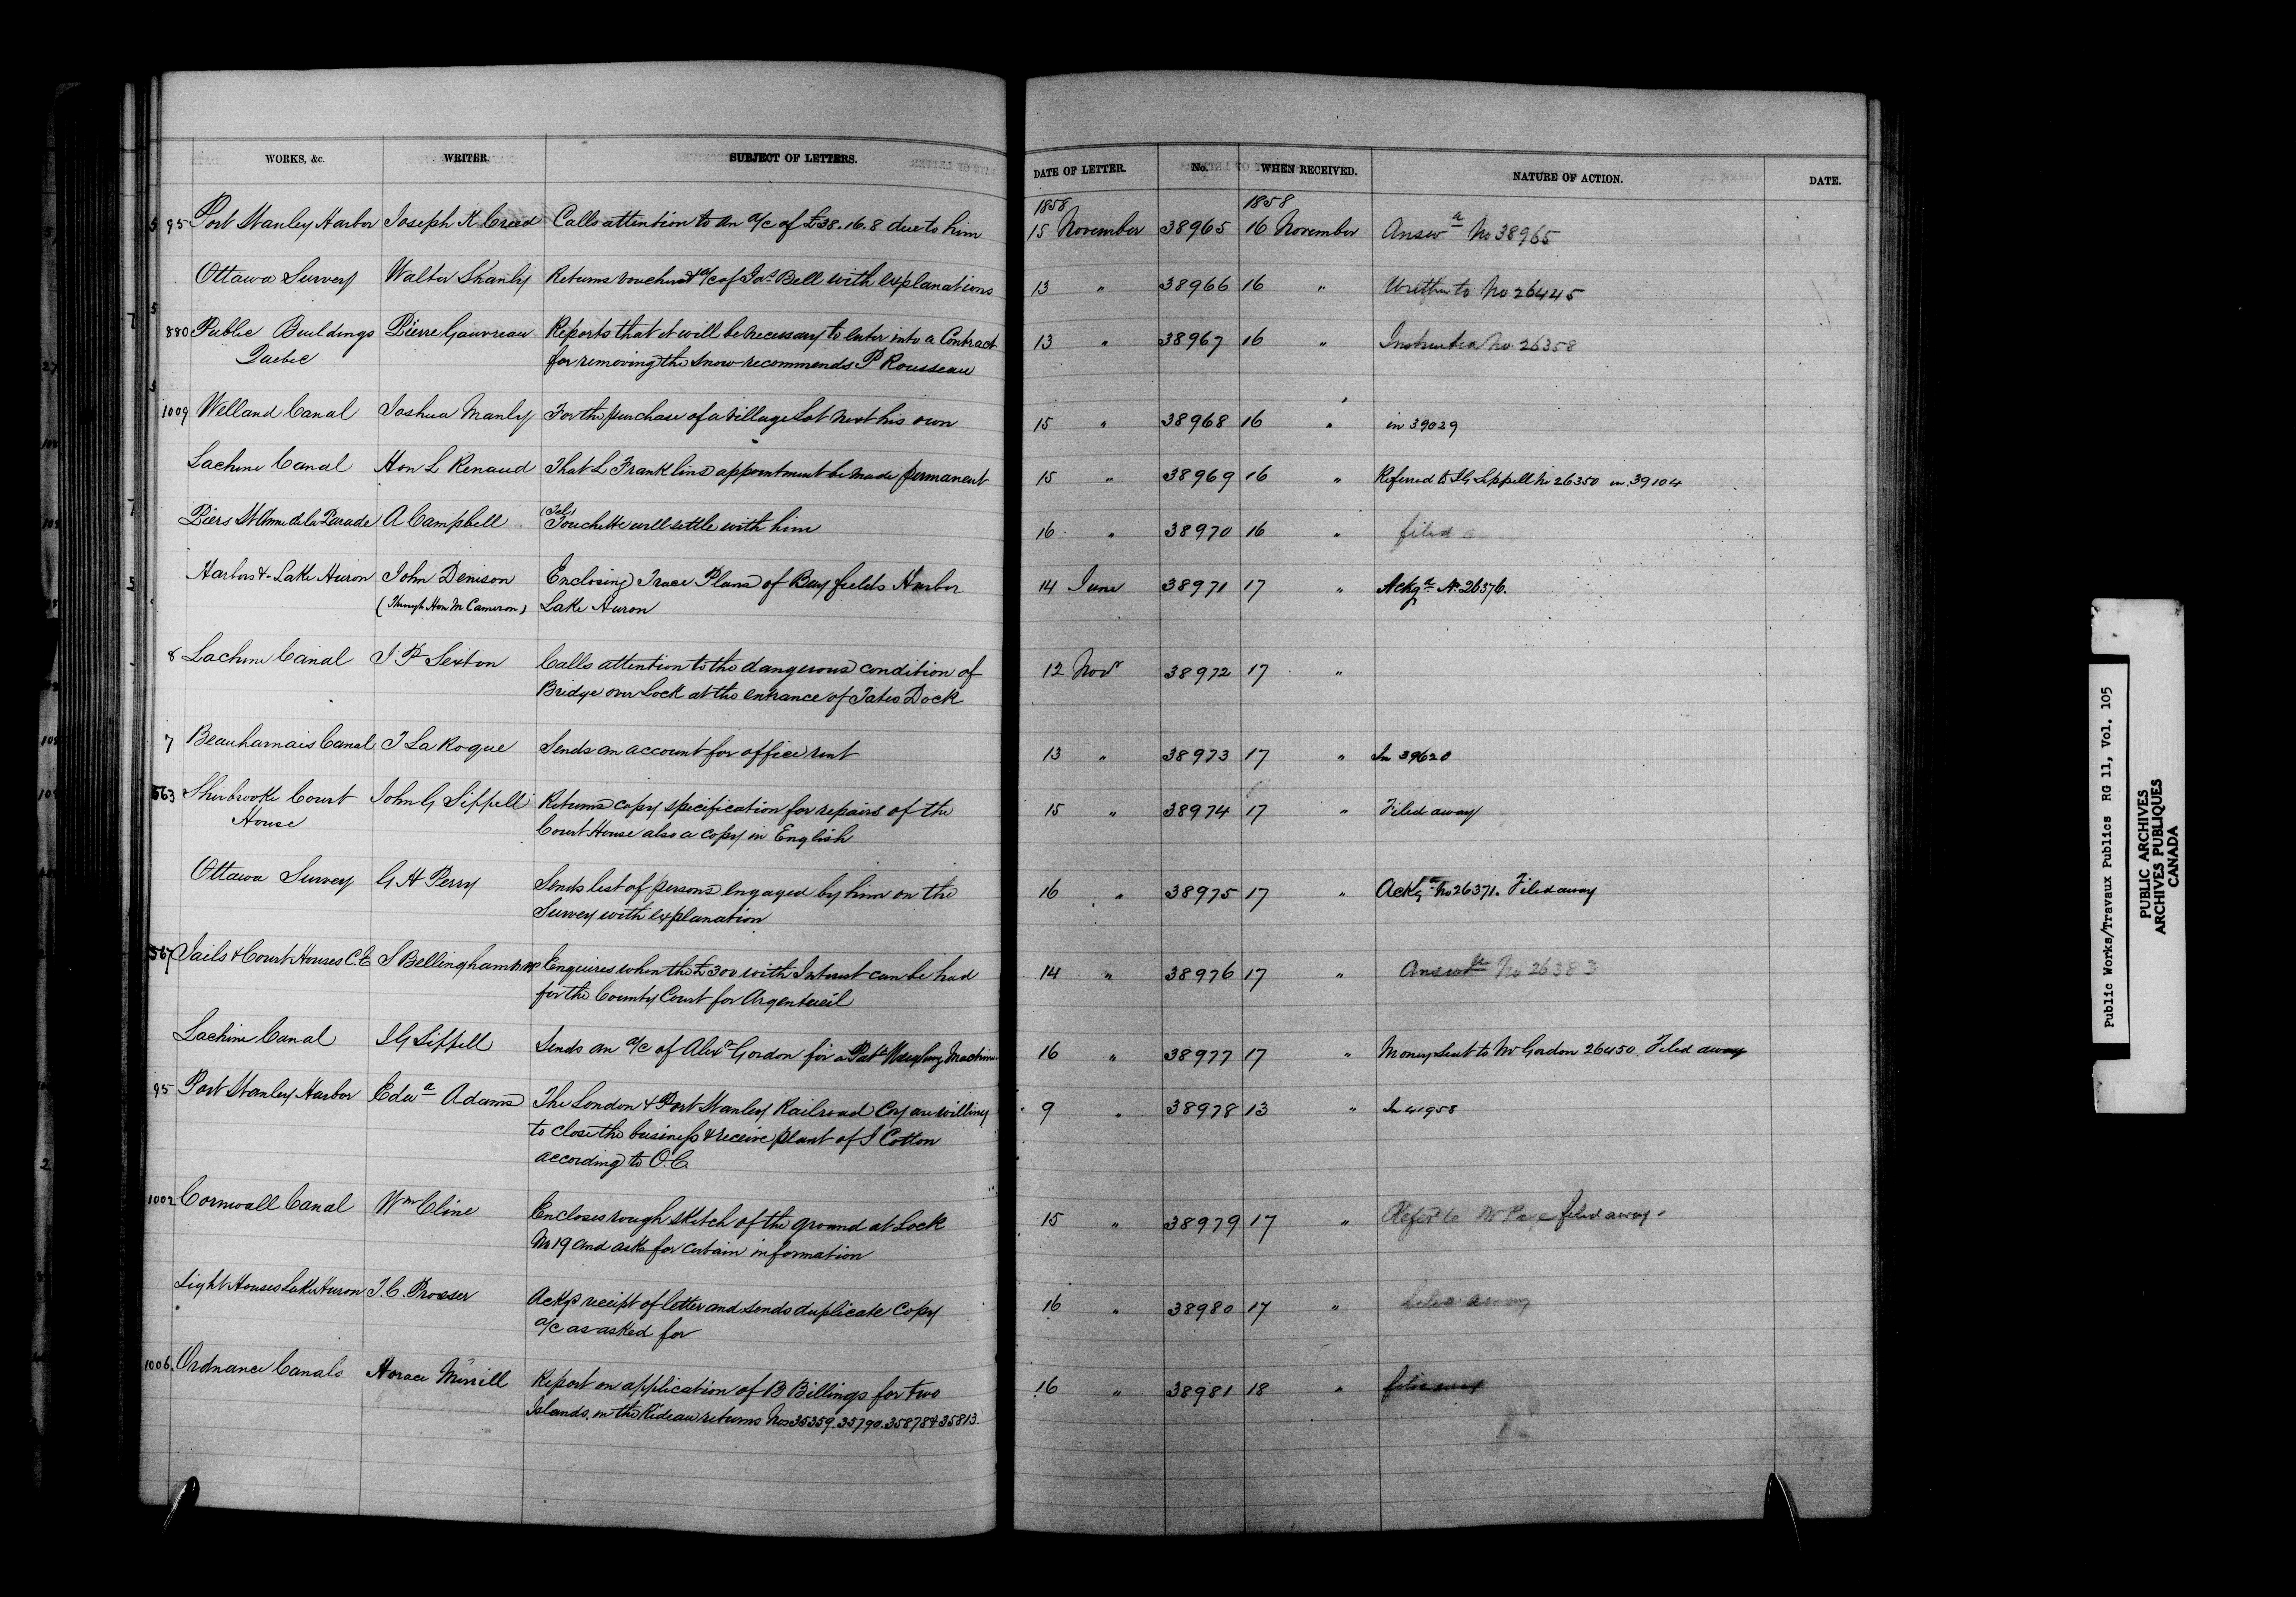 WORKS, &c. WRITER. SUBJECT OF LETTERS. DATE OF LETTER. No. WHEN RECEIVED. NATURE OF ACTION. DATE.
1858 1858
95 Port Stanley Harbor Joseph K. Creed Calls attention to an a/c of £38.16.8 due to him 15 November 38965 16 November Answd No 38965
Ottawa Survey Walter Shanly Returns vouchers & a/c of Jas Bell with explanations 13 " 38966 16 " Written to No 26445
880 Public Buildings Pierre Gauvreau Reports that it will be necessary to enter into a Contract 13 " 38967 16 " Instructed No. 26358
Quebec for removing the snow recommends P Rousseau
1009 Welland Canal Joshua Manly For the purchase of a Village Lot next his own 15 " 38968 16 " in 39029
Lachine Canal Hon L Renaud That L Franklins appointment be made permanent 15 " 38969 16 " Referred to J G Sippell No 26350 in 39104
Piers St Anne de la Parade A Campbell (Tel) Touchette will settle with him 16 " 38970 16 " filed
Harbors &. Lake Huron John Denison Enclosing Trace Plans of Bayfields Harbor 14 June 38971 17 " Ackgd No. 26376.
(Through Hon M Cameron) Lake Huron
8 Lachine Canal J P Sexton Calls attention to the dangerous condition of 12 Novr 38972 17 "
Bridge over Lock at the entrance of Tates Dock
7 Beauharnais Canal J LaRoque Sends an account for office rent 13 " 38973 17 " In 39620
563 Sherbrooke Court John G Sippell Returns copy specification for repairs of the 15 " 38974 17 " Filed away
House Court House also a copy in English
Ottawa Survey G H Perry Sends list of persons engaged by him on the 16 " 38975 17 " Ackgd No 26371. Filed away
Survey with explanation
567 Jails & Court Houses C.E S Bellingham MPP Enquires when the £300 with Interest can be had 14 " 38976 17 " Answd No 26383
for the County Court for Argenteuil
Lachine Canal J G Sippell Sends an a/c of Alexr Gordon for a Patt Weighing Machine 16 " 38977 17 " Money sent to Mr Gordon 26450 Filed away
95 Port Stanley Harbor Edwd Adams The London & Port Stanley Railroad Coy are willing 9 " 38978 13 " In 41958
to close the business & receive plant of J Cotton
according to O.C.
1002 Cornwall Canal Wm Cline Encloses rough sketch of the ground at Lock 15 " 38979 17 " Referd to Mr Page filed away.
No 19 and asks for certain information
Light Houses Lake Huron T. C. Prosser Ackgs receipt of letter and sends duplicate Copy 16 " 38980 17 " filed away
a/c as asked for
1006. Ordnance Canals Horace Merrill Report on application of B Billings for two 16 " 38981 18 " filed away
Islands in the Rideau returns Nos 35359. 35790. 35878 & 35813.
Public Works/Travaux Publics RG 11, Vol. 105
PUBLIC ARCHIVES
ARCHIVES PUBLIQUES
CANADA